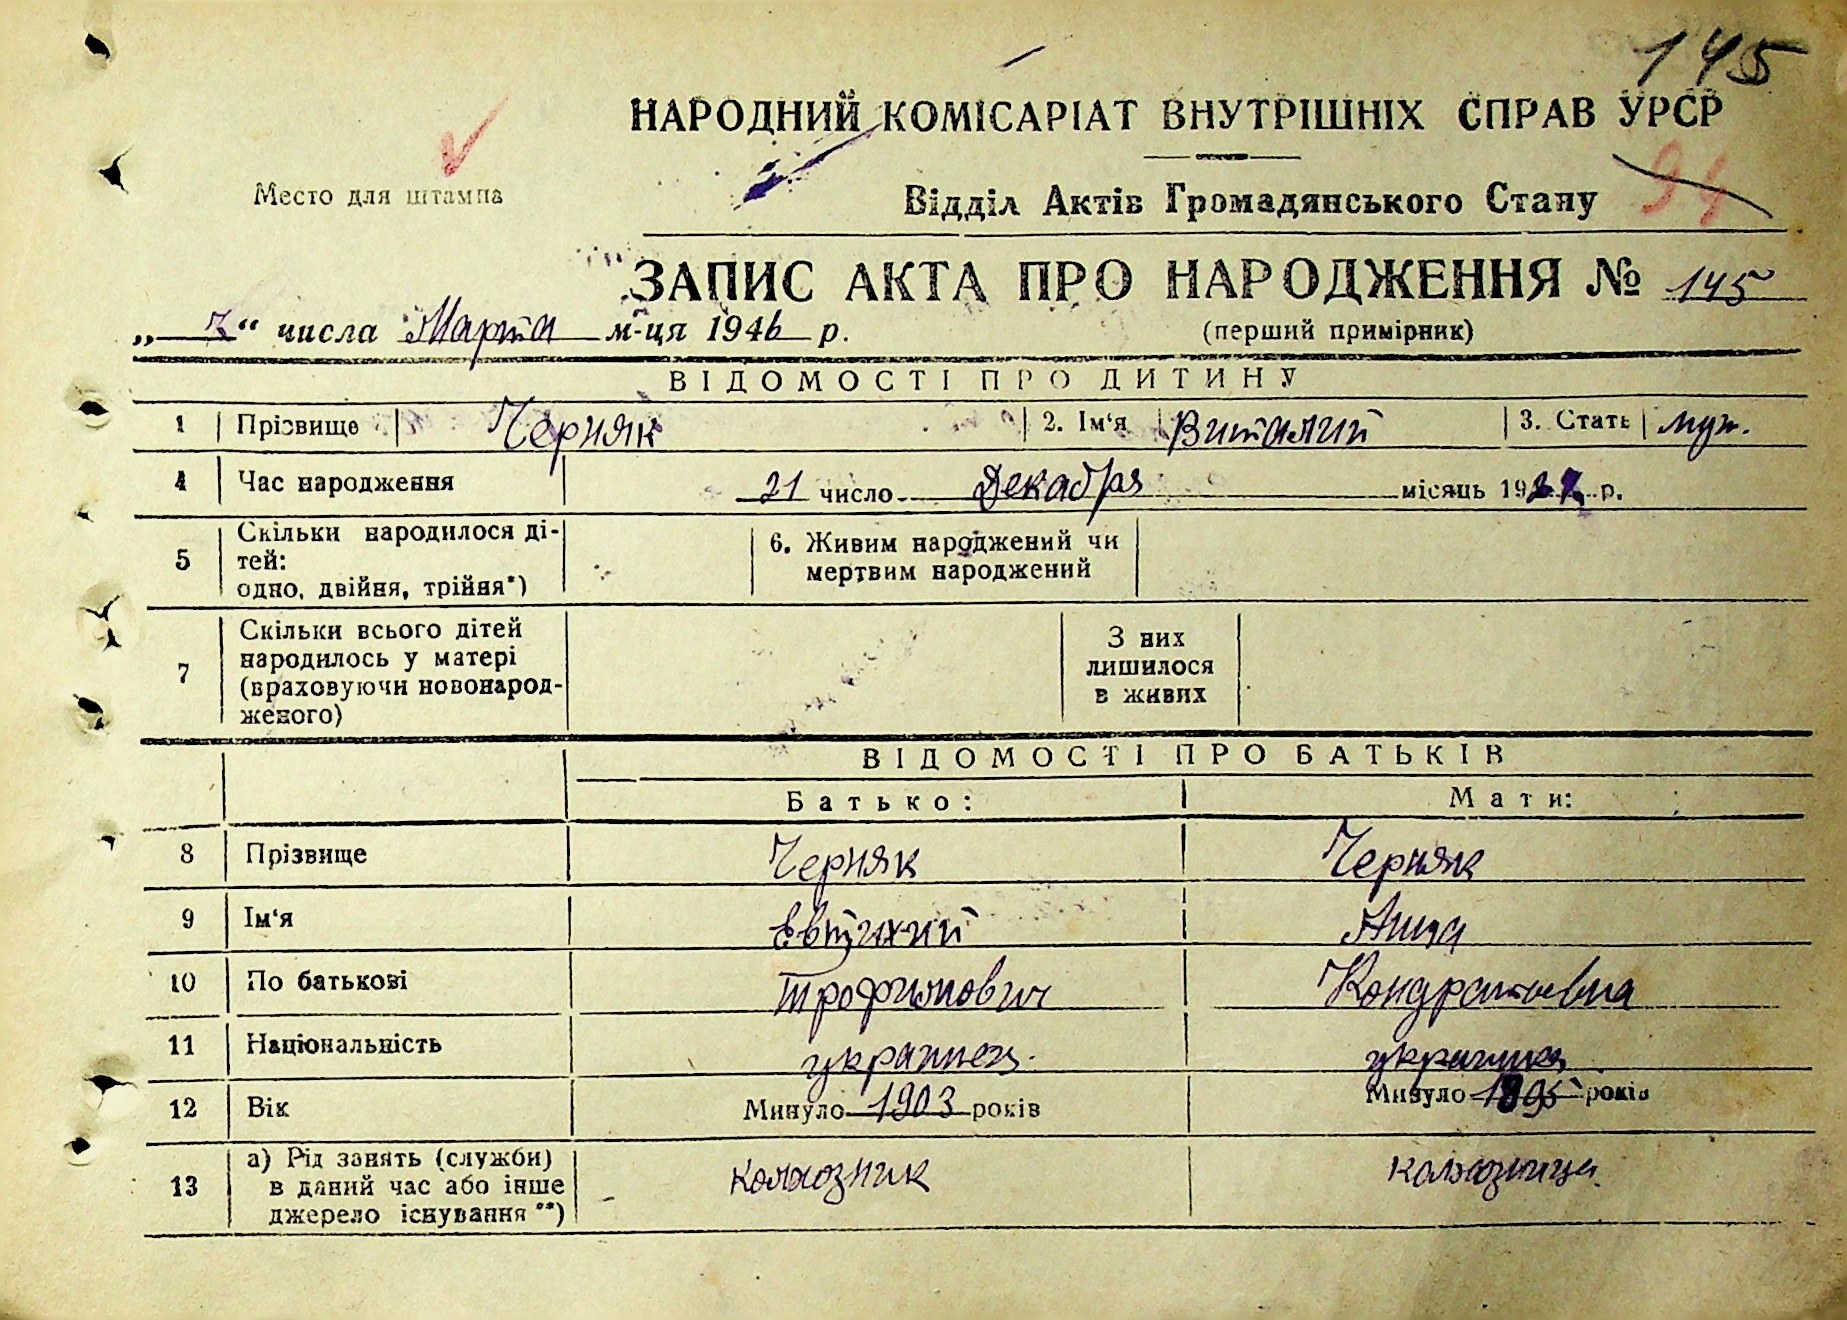 145
НАРОДНИЙ КОМІСАРІАТ ВНУТРІШНІХ СПРАВ УРСР
Место для штампа
Відділ Актів Громадянського Стану 94
ЗАПИС АКТА ПРО НАРОДЖЕННЯ № 145
„ 7 “ числа Марта м-ця 1946 р. (перший примірник)
ВІДОМОСТІ ПРО ДИТИНУ
1 Прізвище Черняк 2. Ім‘я Виталий 3. Стать муж.
4 Час народження 21 число Декабря місяць 19 р.
5 Скільки народилося ді-
тей:
одно, двійня, трійня*)
6. Живим народжений чи
мертвим народжений
7 Скільки всього дітей
народилось у матері
(враховуючи новонарод-
женого)
З них
лишилося
в живих
ВІДОМОСТІ ПРО БАТЬКІВ
Батько: Мати:
8 Прізвище Черняк Черняк
9 Ім‘я Евтихий
10 По батькові Трофимович Кондратьевна
11 Національність украинец украинка
12 Вік Минуло 1903 років Минуло 1895 років
13 а) Рід занять (служби)
в даний час або інше
джерело існування **)
колхозник колхозница